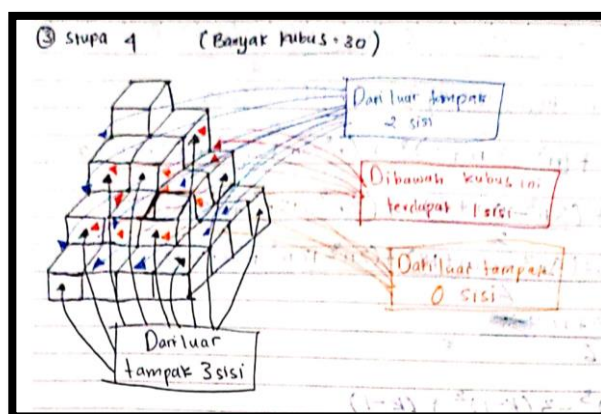 ③ Stupa 4 (Banyak kubus = 30)
Dari luar tampak
2 sisi
Dibawah kubus ini
terdapat 1 sisi
Dari luar tampak
0 sisi
Dari luar
tampak 3 sisi